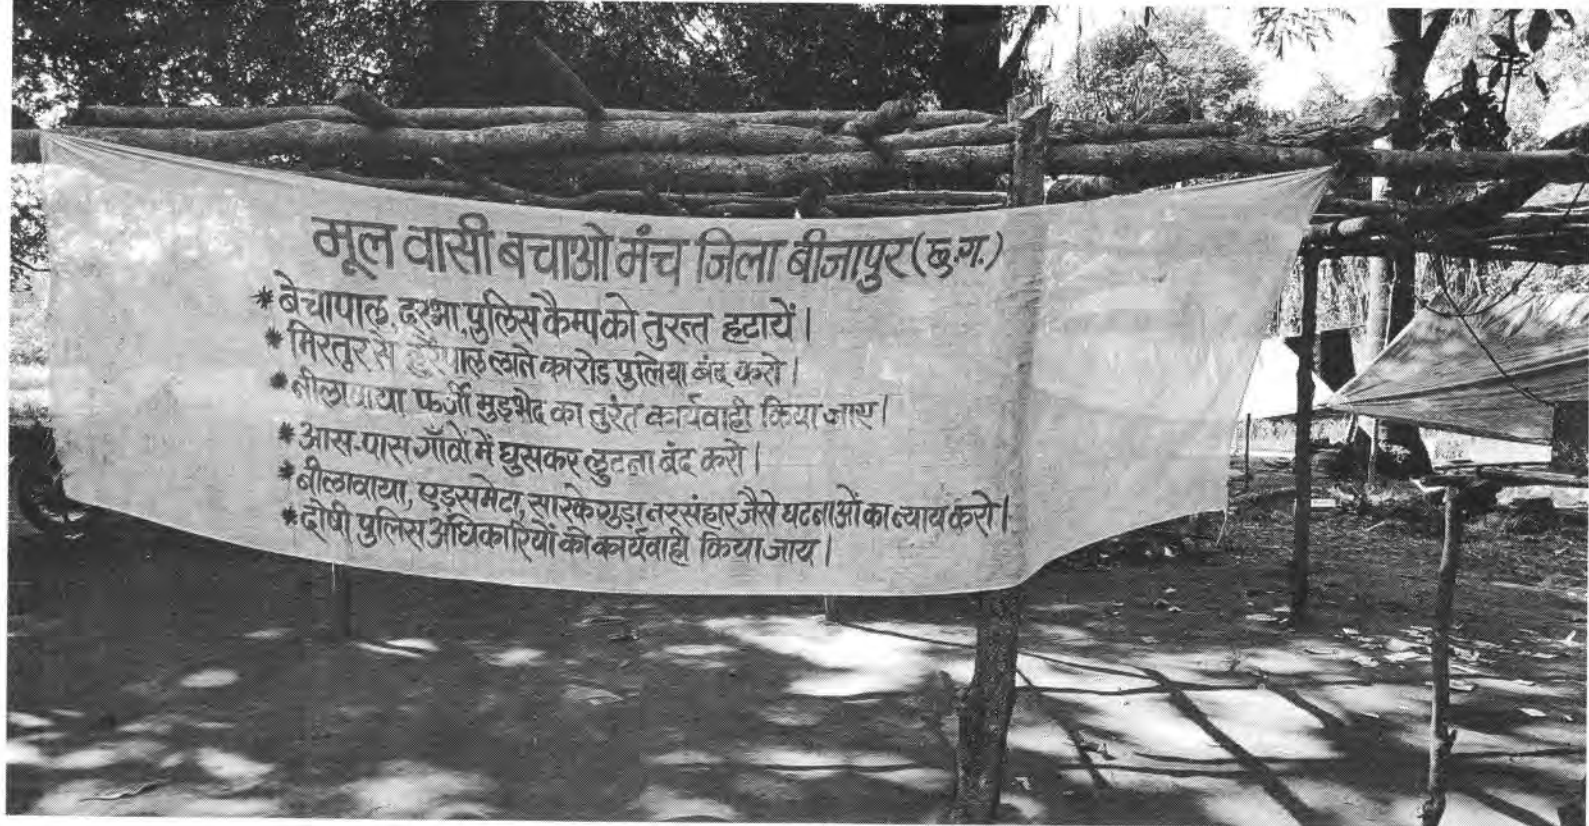 मूल वासी बचाओ मंच जिला बीजापुर (छ.ग.)
* बेचापाल, दरभा, पुलिस कैम्प को तुरन्त हटायें।
* मिरतुर से हुर्रेपाल लाने का रोड पुलिया बंद करो।
* नीलावाया फर्जी मुड़भेद का तुरंत कार्यवाही किया जाय।
* आस-पास गाँवों में घुसकर लुटना बंद करो।
* नीलावाया, एड़समेटा, सारकेगुड़ा नरसंहार जैसे घटनाओं का न्याय करो।
* दोषी पुलिस अधिकारियों को कार्यवाही किया जाय।